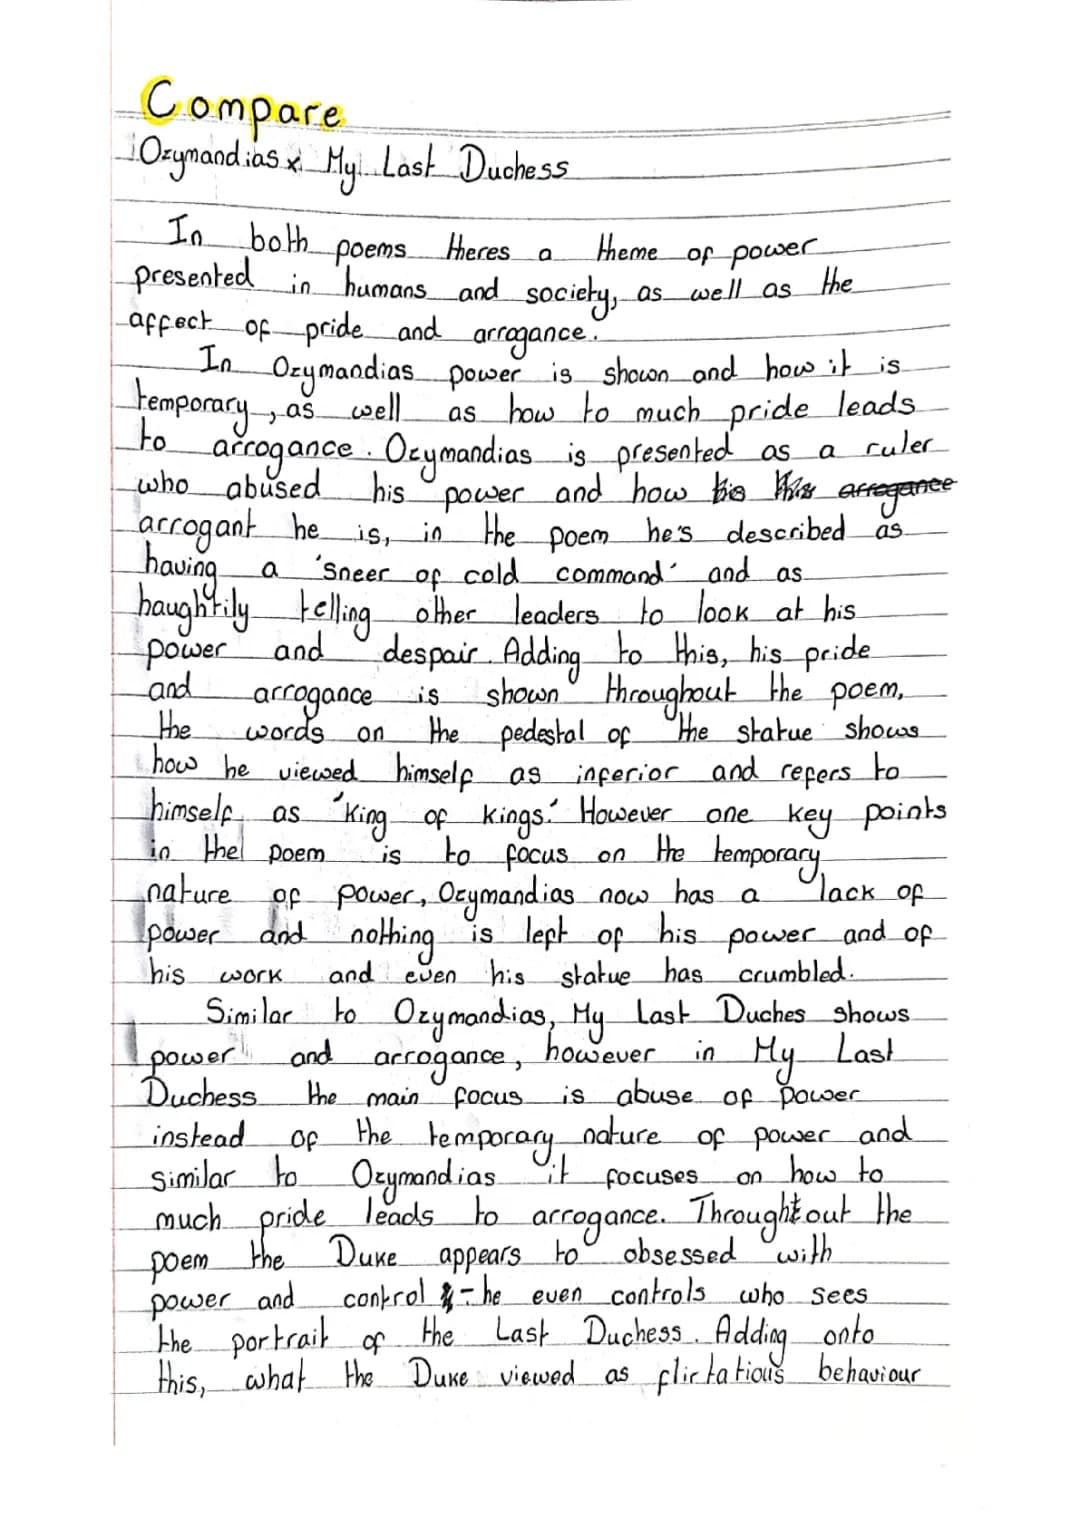 Compare
Ozymandias x My Last Duchess
In both poems theres a theme of power
presented in humans and society, as well as the
affect of pride and arrogance.
In Ozymandias power is shown and how it is
temporary, as well as how to much pride leads
to arrogance. Ozymandias is presented as a ruler
who abused his power and how his his arrogance
arrogant he is, in the poem he's described as
having a 'sneer of cold command' and as
haughtily telling other leaders to look at his
power and despair. Adding to this, his pride
and arrogance is shown throughout the poem,
the words on the pedestal of the statue shows
how he viewed himself as inferior and refers to
himself as 'King of Kings.' However one key points
in the poem is to focus on the temporary
nature of power, Ozymandias now has a lack of
power and nothing is left of his power and of
his work and even his statue has crumbled.
Similar to Ozymandias, My Last Duches shows
power and arrogance, however in My Last
Duchess the main focus is abuse of power
instead of the temporary nature of power and
similar to Ozymandias it focuses on how to
much pride leads to arrogance. Throughout the
poem the Duke appears to obsessed with
power and control - he even controls who sees
the portrait of the Last Duchess. Adding onto
this, what the Duke viewed as flirtatious behaviour